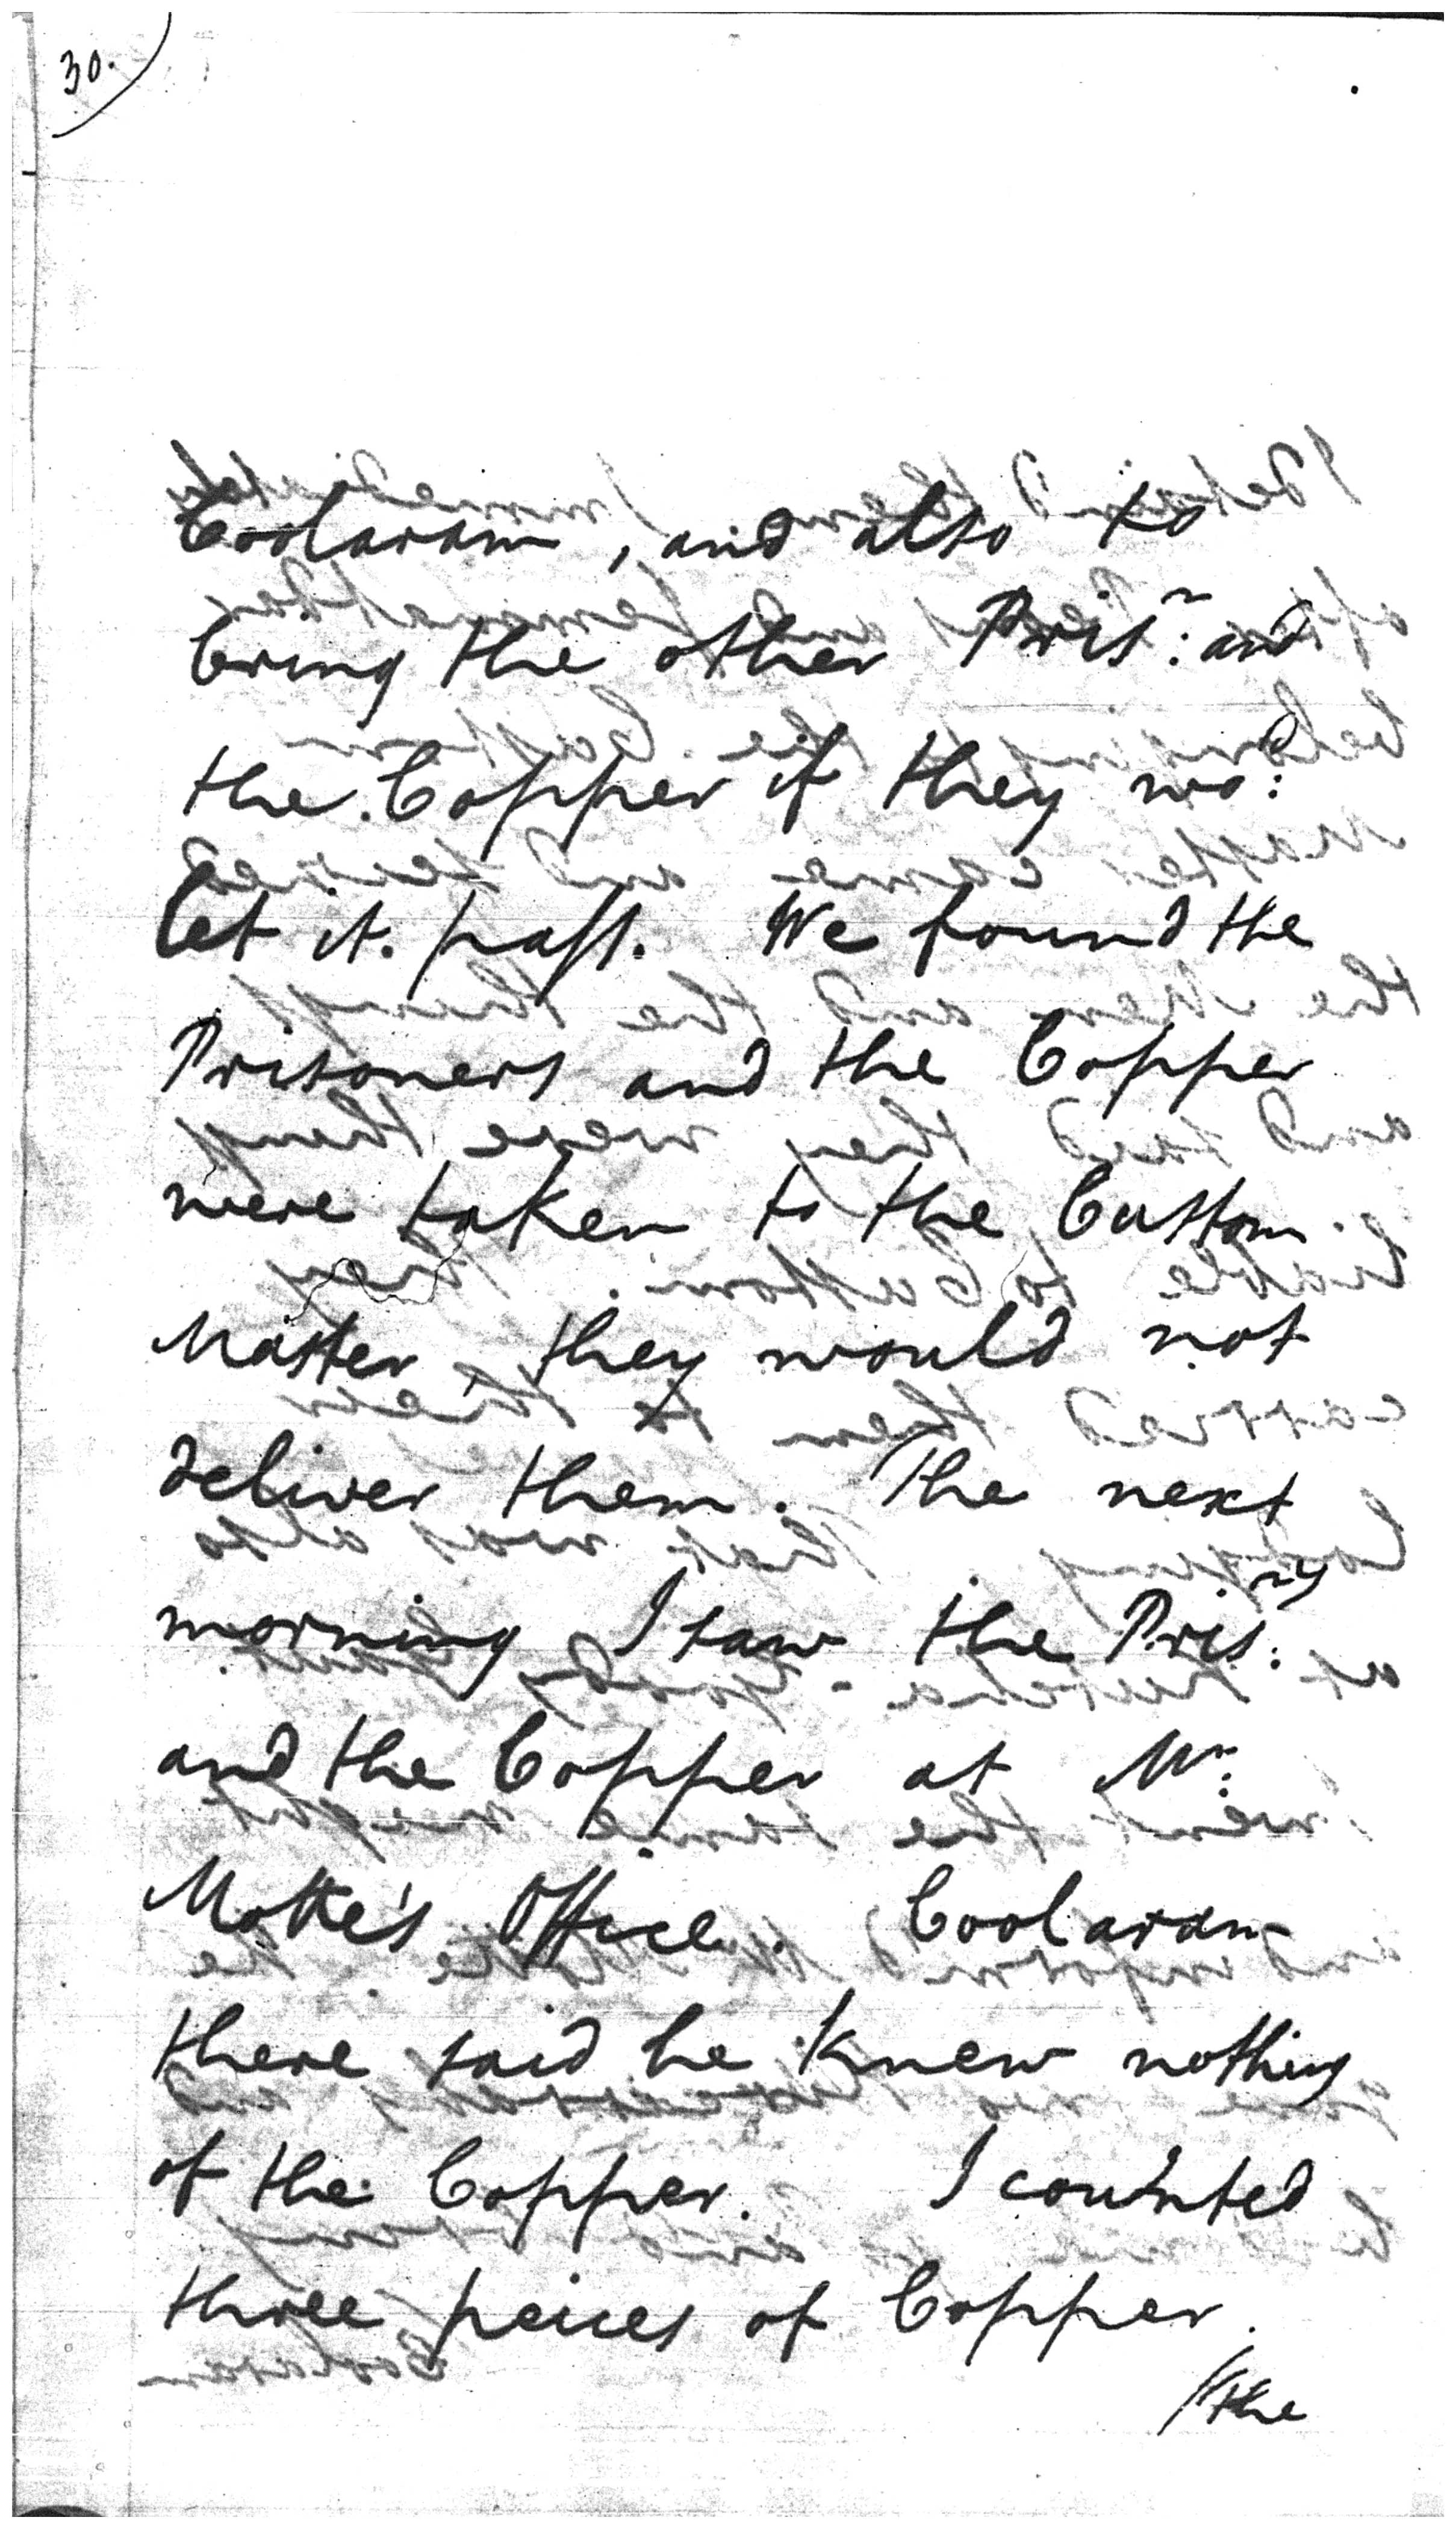 30.
Coolaram, and also to
bring the other Pris:ʳ and
the Copper if they wo:ᵈ
let it pass. We found the
Prisoners and the Copper
were taken to the Custom
Master, they would not
deliver them. The next
morning I saw the Pris:ʳˢ
and the Copper at Mʳ:
Motte's Office. Coolaram
there said he knew nothing
of the Copper. I counted
three peices of Copper.
/The